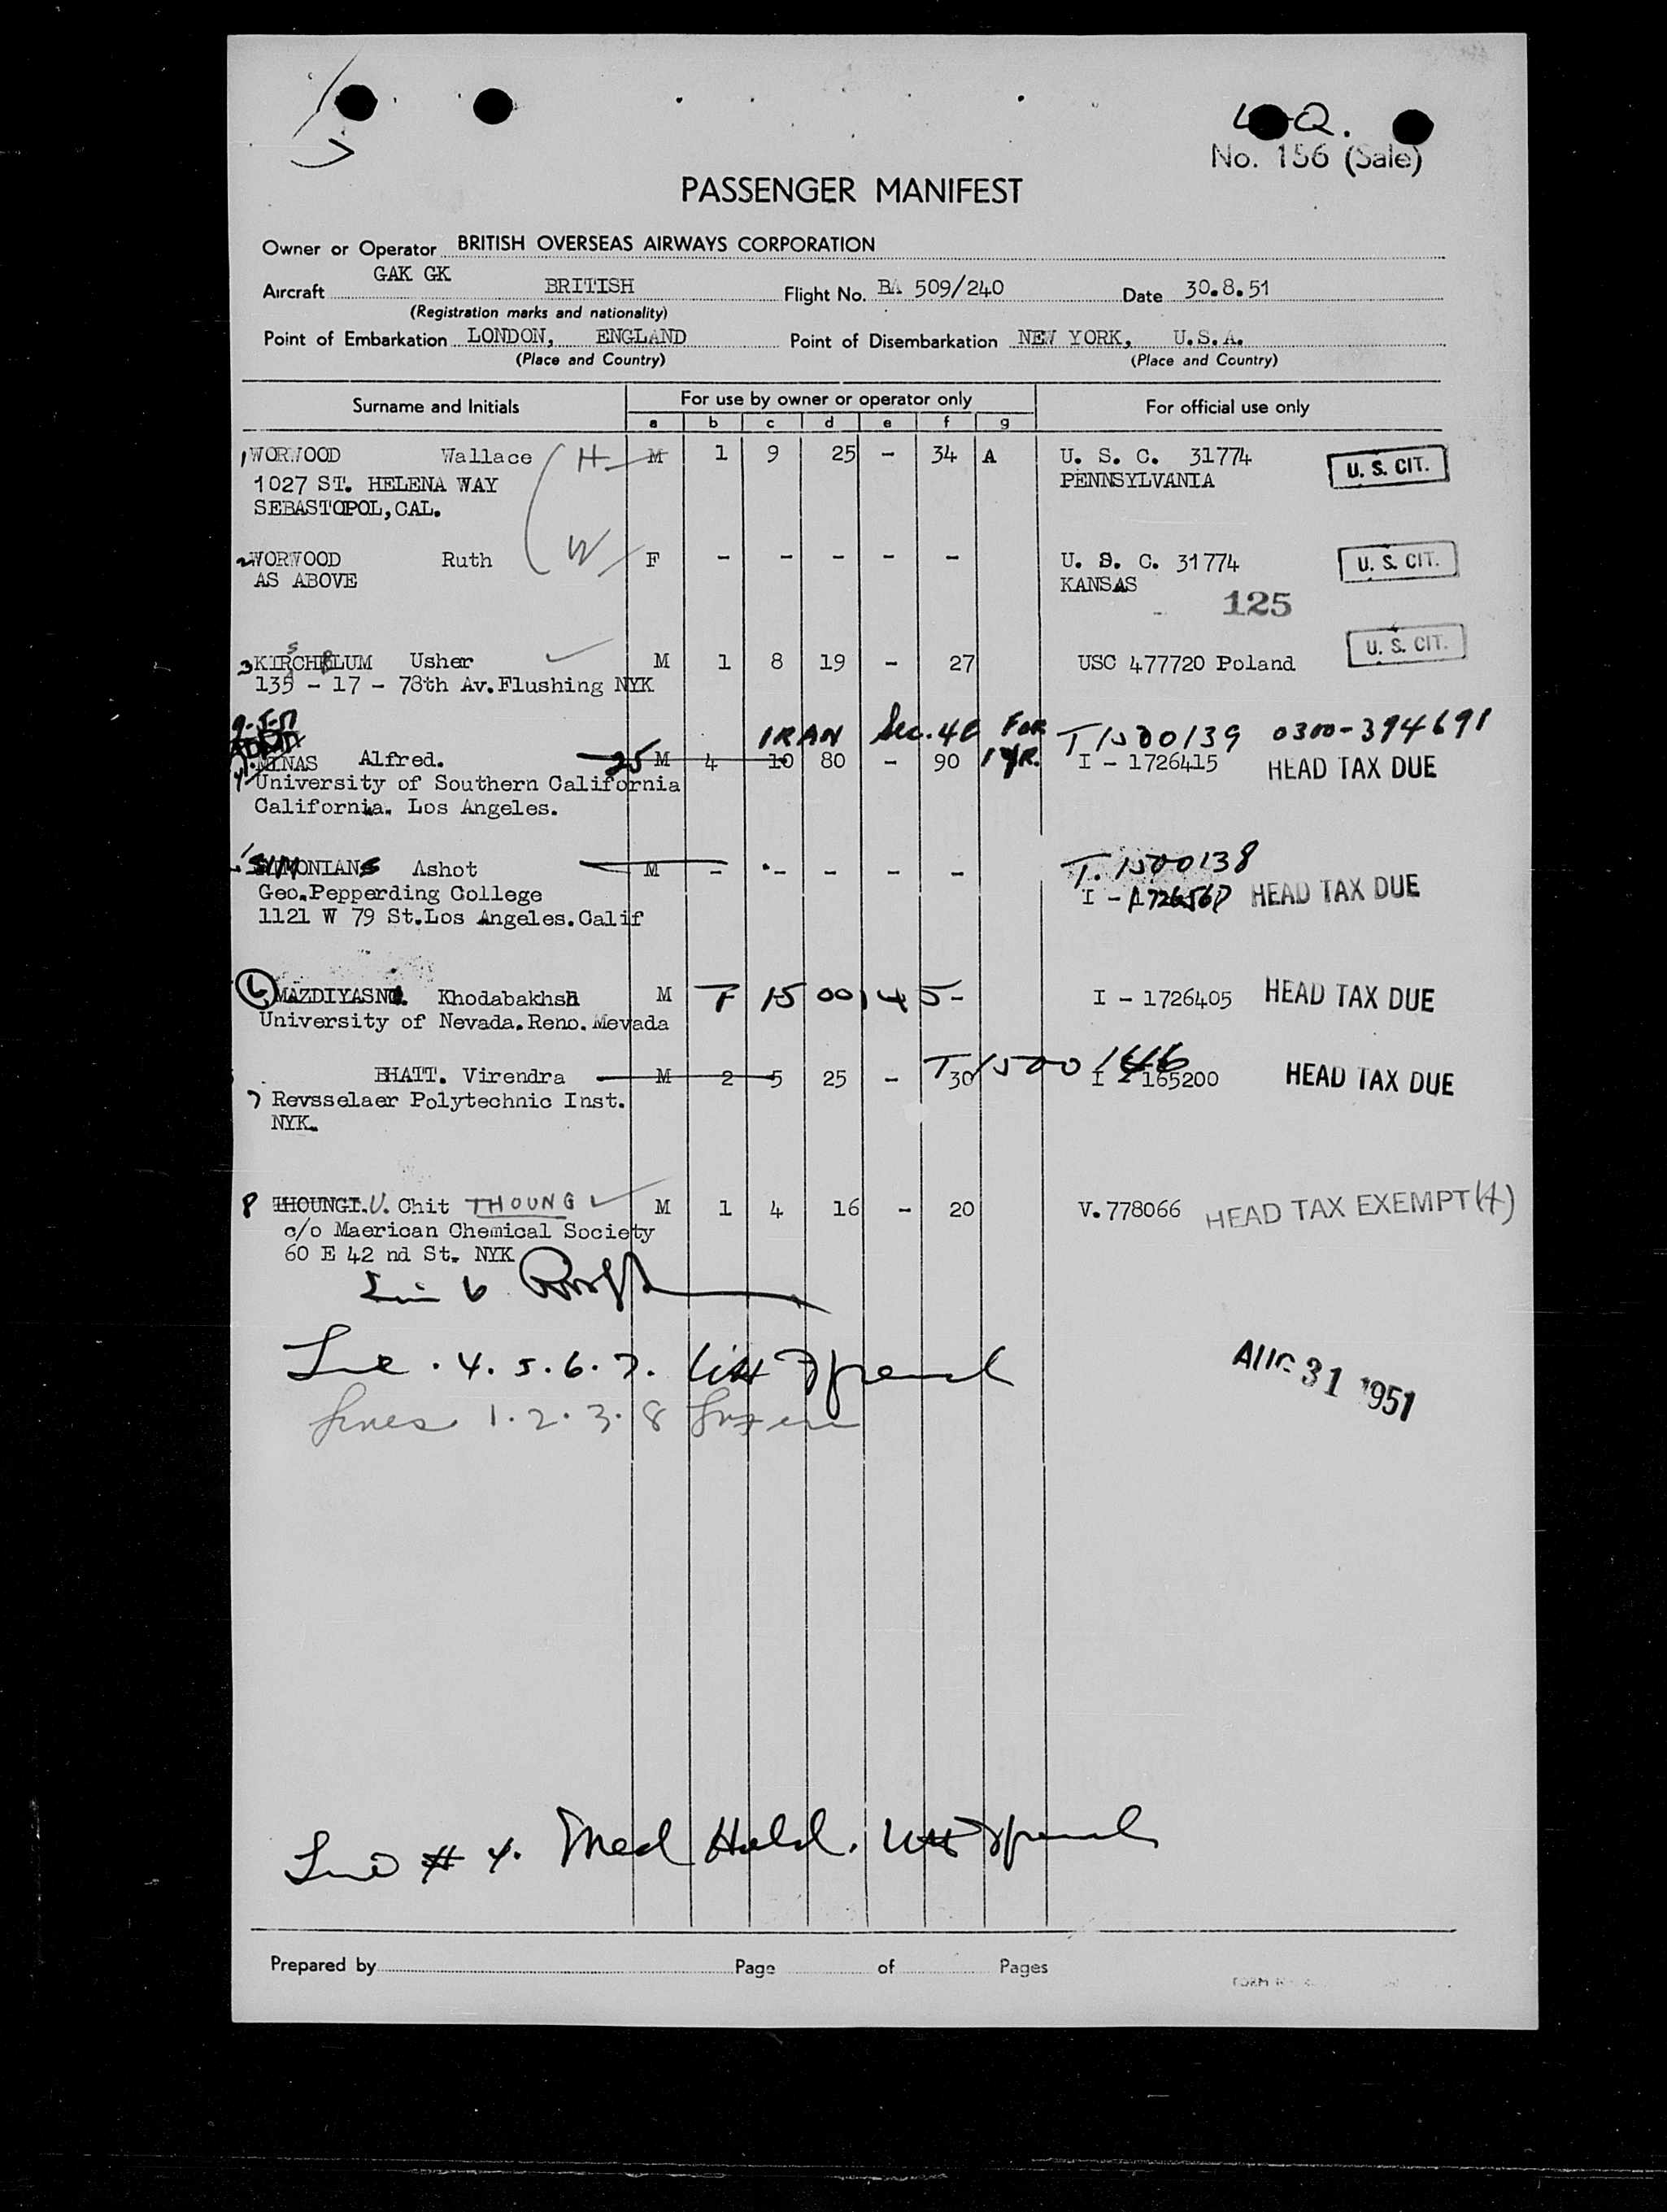 No. 156 (Sale)
PASSENGER MANIFEST
Owner or Operator BRITISH OVERSEAS AIRWAYS CORPORATION
Aircraft GAK GK BRITISH Flight No. BA 509/240 Date 30.8.51
(Registration marks and nationality)
Point of Embarkation LONDON, ENGLAND Point of Disembarkation NEW YORK, U.S.A.
(Place and Country) (Place and Country)
Surname and Initials For use by owner or operator only For official use only
a b c d e f g
1 WORWOOD Wallace H M 1 9 25 - 34 A U. S. C. 31774 U. S. CIT.
1027 ST. HELENA WAY PENNSYLVANIA
SEBASTOPOL, CAL.
2 WORWOOD Ruth W F - - - - - U. S. C. 31774 U. S. CIT.
AS ABOVE KANSAS
125
3 KIRSCHBLUM Usher M 1 8 19 - 27 USC 477720 Poland U. S. CIT.
135 - 17 - 78th Av.Flushing NYK
9-5-51 IRAN Sec. 4E FOR 1 YR. T1500139 0300-394691
4 MINAS Alfred. 25 M 4 10 80 - 90 I - 1726415 HEAD TAX DUE
University of Southern California
California. Los Angeles.
SIMONIANS Ashot M - - - - - T.1500138
Geo.Pepperding College I - HEAD TAX DUE
1121 W 79 St.Los Angeles.Calif
6 MAZDIYASNI. Khodabakhsh M T 1500145- I - 1726405 HEAD TAX DUE
University of Nevada.Reno.Mevada
BHATT. Virendra M 2 5 25 - 30 T1500146 I - 165200 HEAD TAX DUE
7 Revsselaer Polytechnic Inst.
NYK.
8 THOUNGI. U. Chit THOUNG M 1 4 16 - 20 V.778066 HEAD TAX EXEMPT(4)
c/o Maerican Chemical Society
60 E 42 nd St. NYK
Line 4.5.6.7.
AUG 31 1951
lines 1.2.3.8
Line # 4. Med Hold.
Prepared by Page of Pages